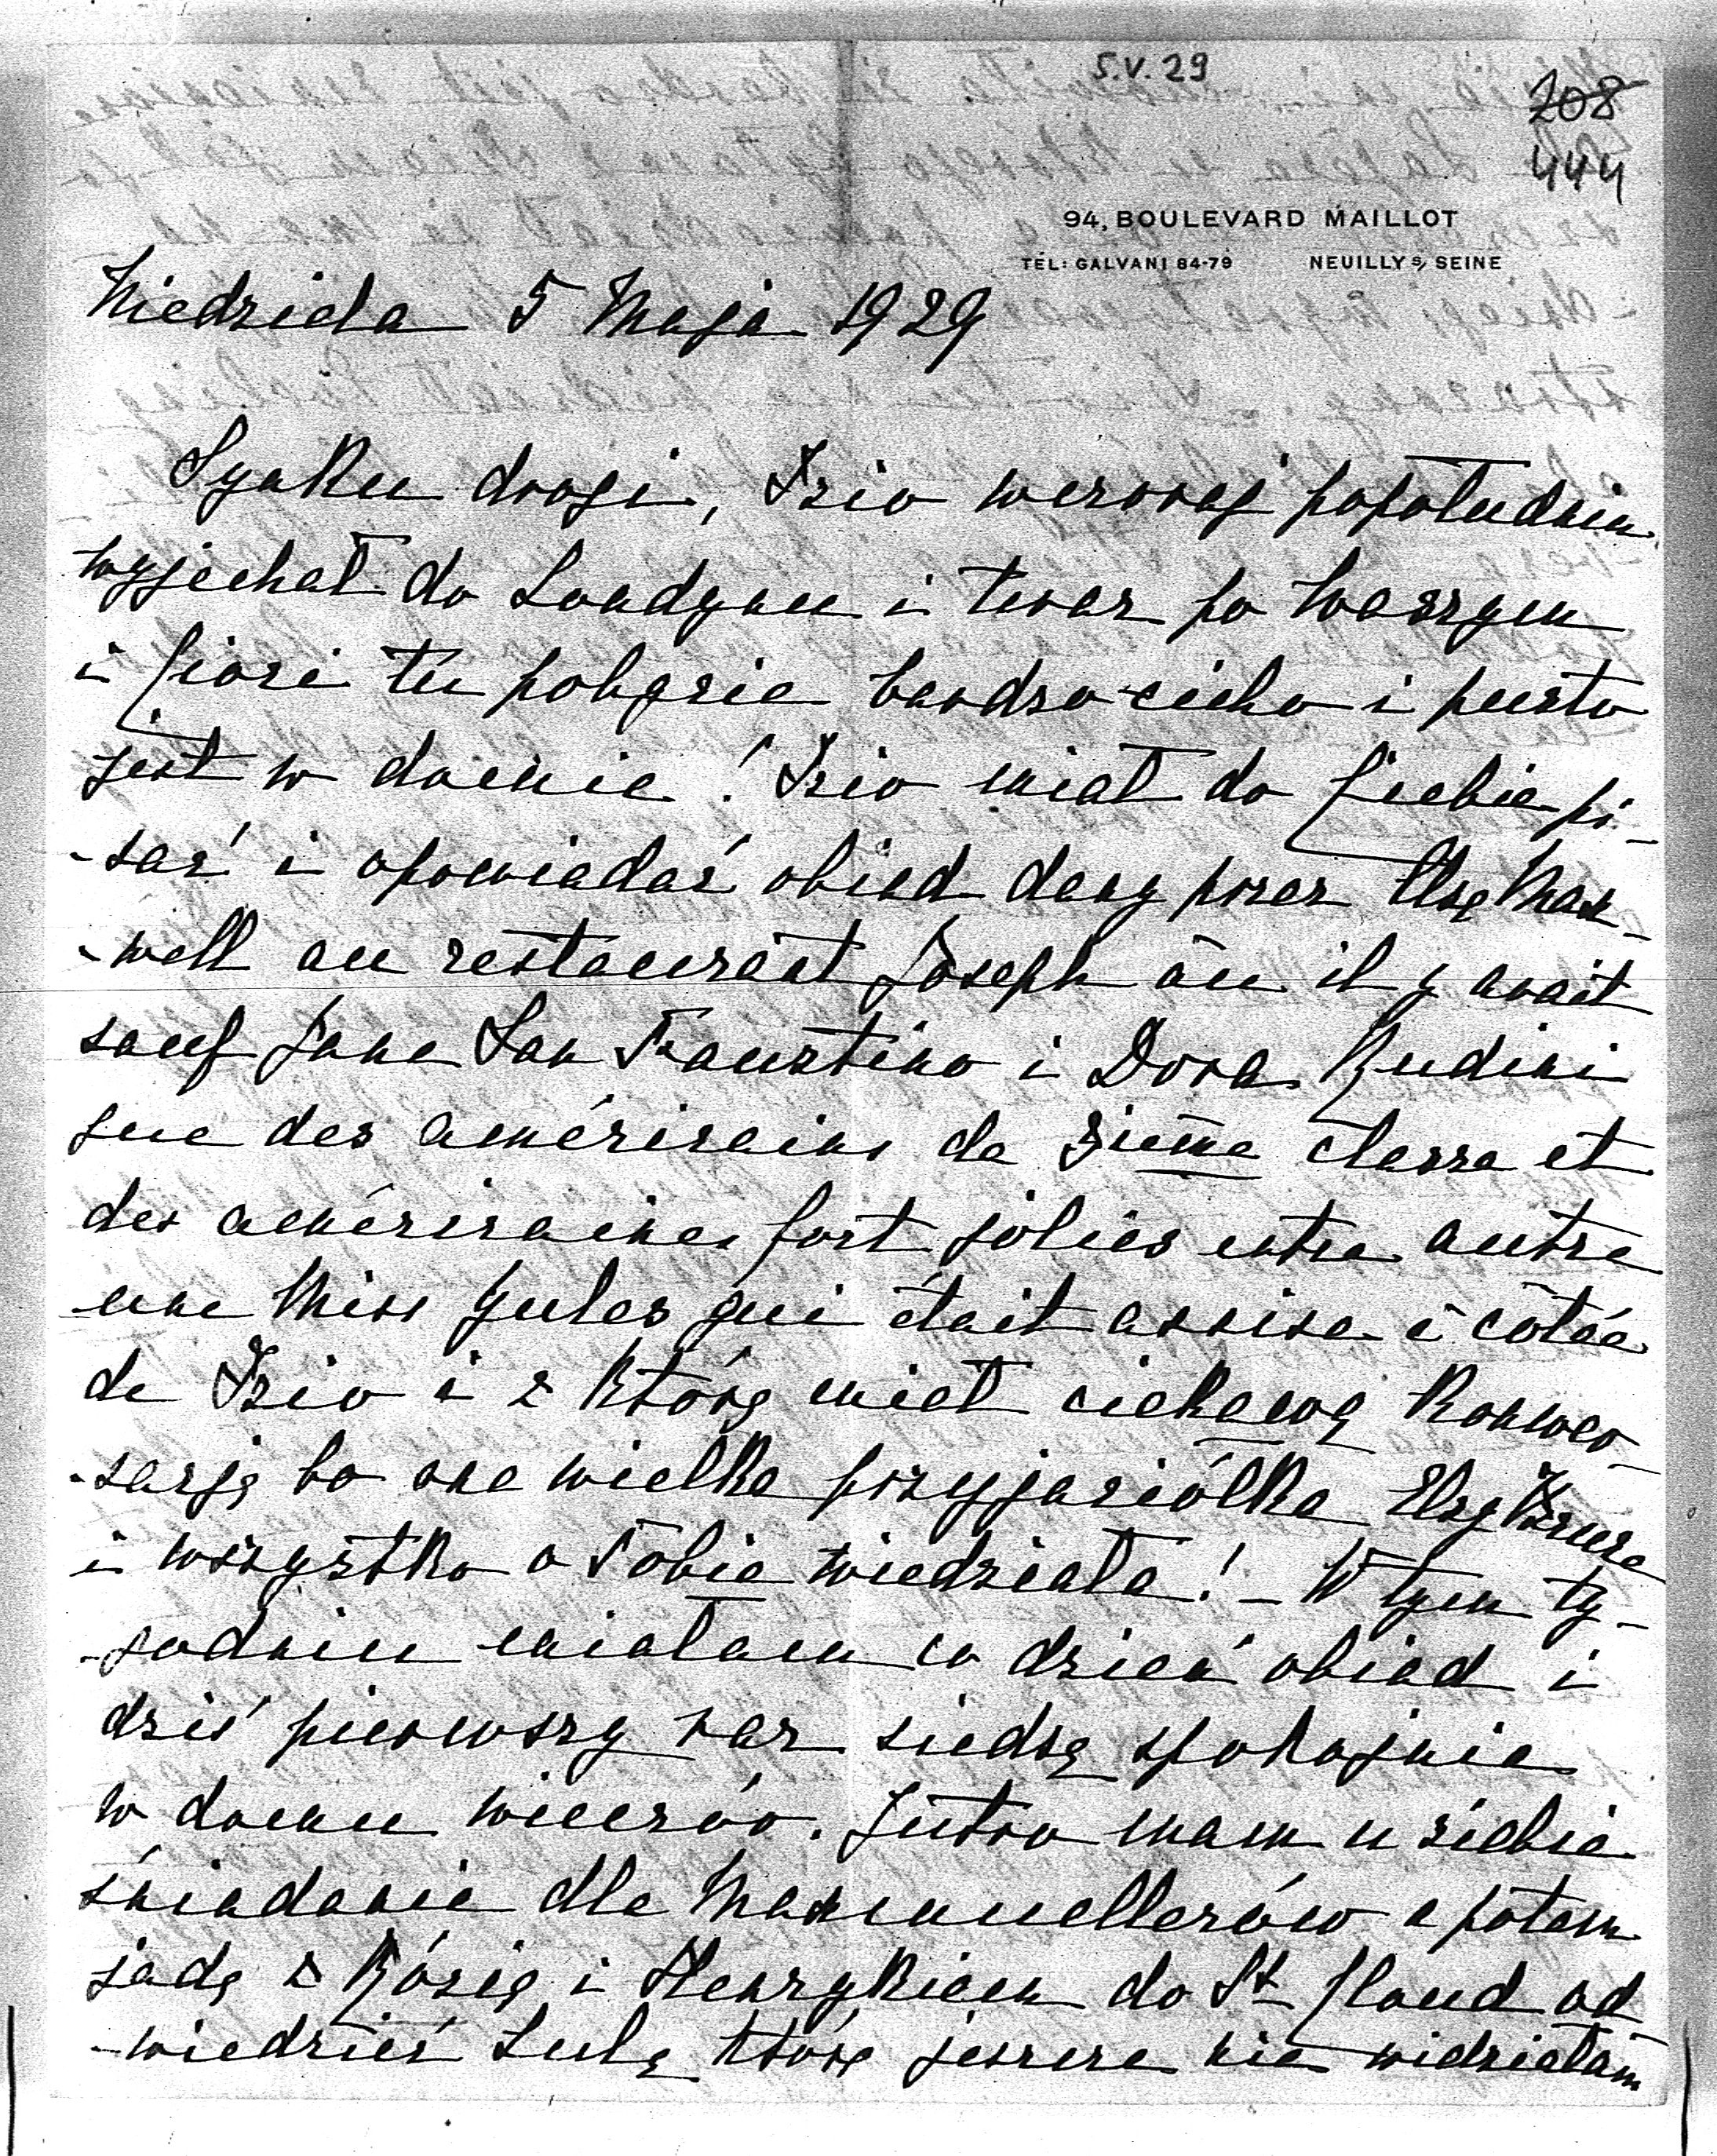 5.V.29
208
444
94, BOULEVARD MAILLOT
TÉL: GALVANI 84-79 NEUILLY S/ SEINE
Niedziela 5 Maja 1929
Synku drogi, Izio wczoraj popołudniu
wyjechał do Londynu i teraz po Waszym
i Ciozi tu pobycie bardzo cicho i pusto
jest w domie! Izio miał do Ciebie pi-
-sać i opowiadać obiad dany przez Elsę Max-
-well au restaurant Joseph où il y avait
sauf Jane San Faustino i Dora Rudini
que des américains de 3ième classe et
des américaines fort jolies entre autre
une Miss Jules qui était assise à côtée
de Izio i z którą miał ciekawą konwer-
-sację bo ona wielka przyjaciółka Elsy
i wszystko o Tobie wiedziała! - W tym ty-
-godniu miałam co dzień obiad i
dziś pierwszy raz siedzę spokojnie
w domu wieczór. Jutro mam u siebie
śniadanie dla Maxmuellerów a potem
jadę z Rózią i Henrykiem do St Cloud od
-wiedzieć Lulę którą jeszcze nie widziałam